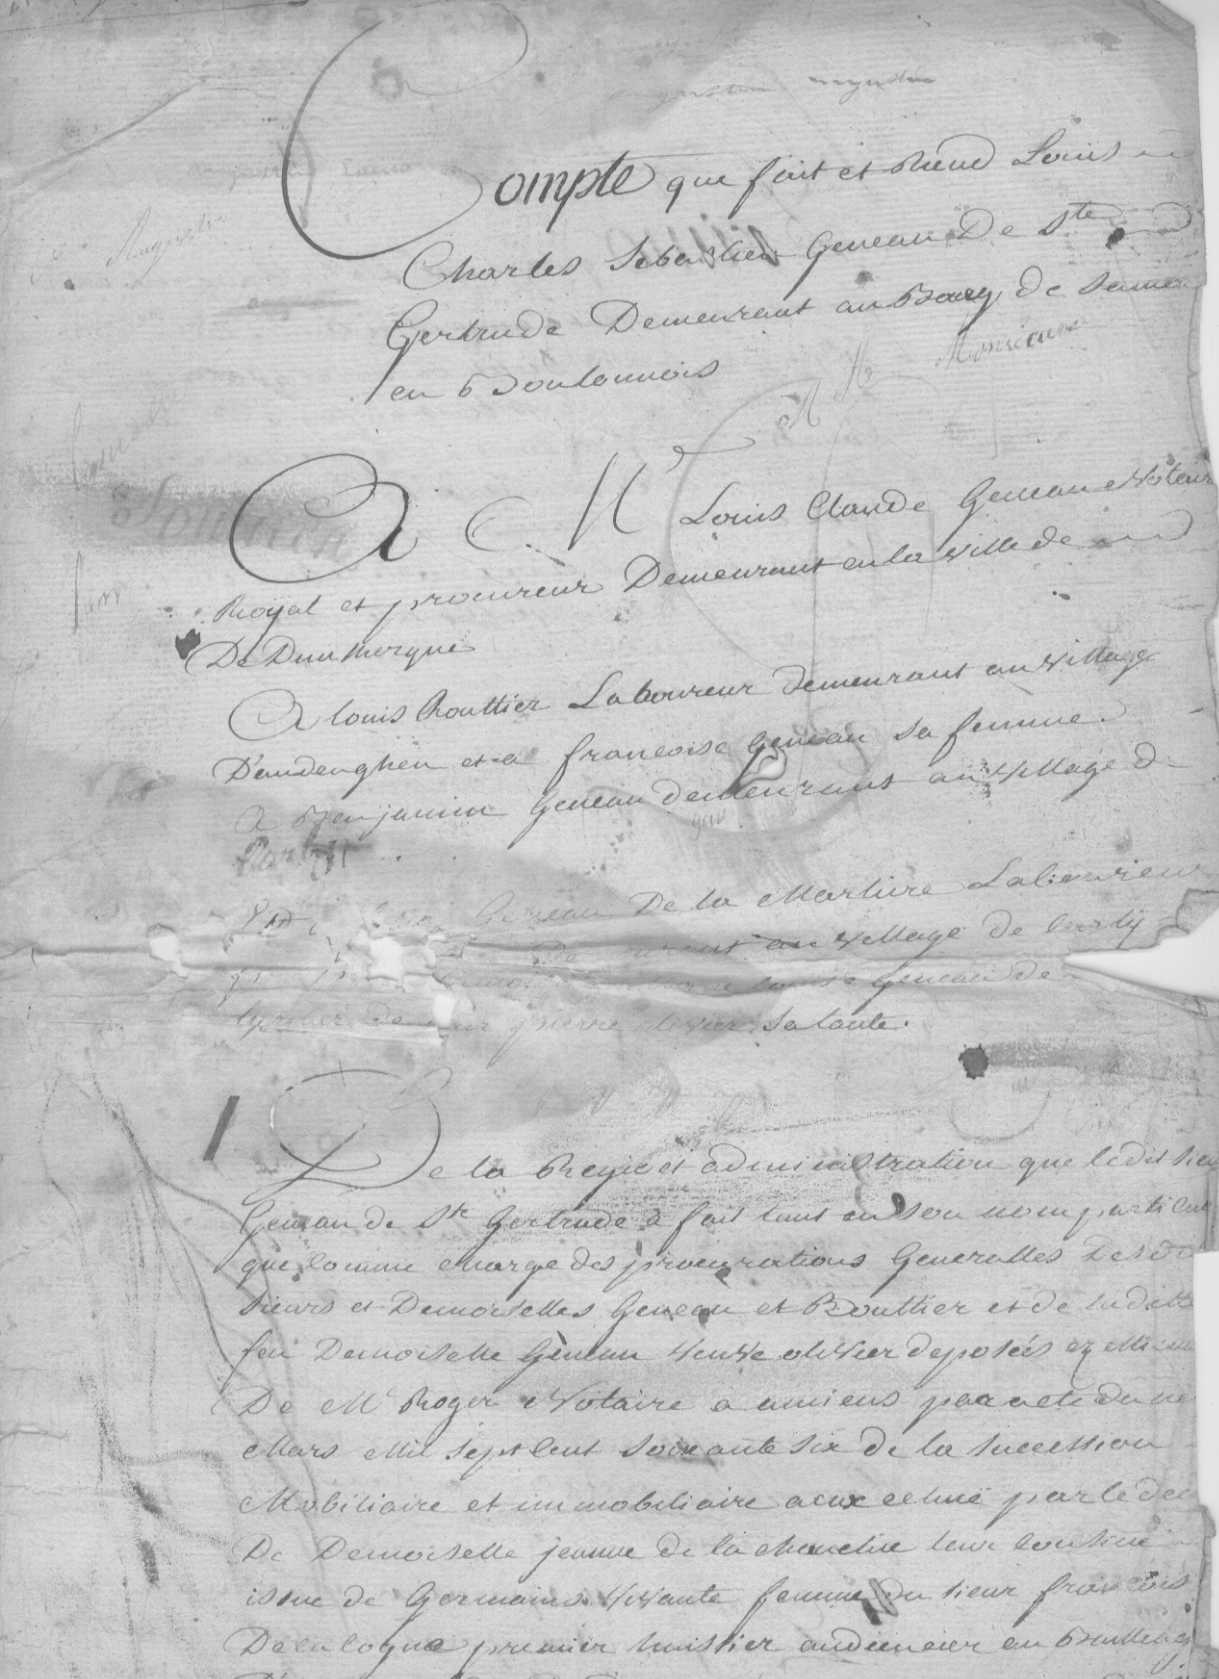 Compte que fait et Rend Louis
Charles Sebastien Geneau De Ste
Gertrude Demeurant au Bourg de Samer
en Boulonnois
A M Louis Claude Geneau Notaire
Royal et procureur Demeurant en la Ville de
De Dunkerque
A louis Routtier Laboureur demeurant au Village
D'audenghen et a francoise Geneau sa femme
A Benjamin Geneau demeurant au Village de
Geneau De la Marliere Laboureur
au Village de
Geneau de
sa tante.
De la Regie et administration que ledit sieur
Geneau de Ste Gertrude a fait tant en son nom particulier
que comme charge des procurations Generalles Desd
sieurs et Demoiselles Geneau et Routtier et de ladite
feu Demoiselle Geneau Veuve olivier deposées ez Minu
De Me Roger Notaire a amiens par acte du
Mars Mil sept Cent soixante six de la succession
Mobiliaire et immobiliaire a eux echue par le deces
De Demoiselle jeanne de la chauelne leur Cousine
issue de Germains Vivante femme du sieur francois
Delalogue premier huissier audiencier au Bailliage